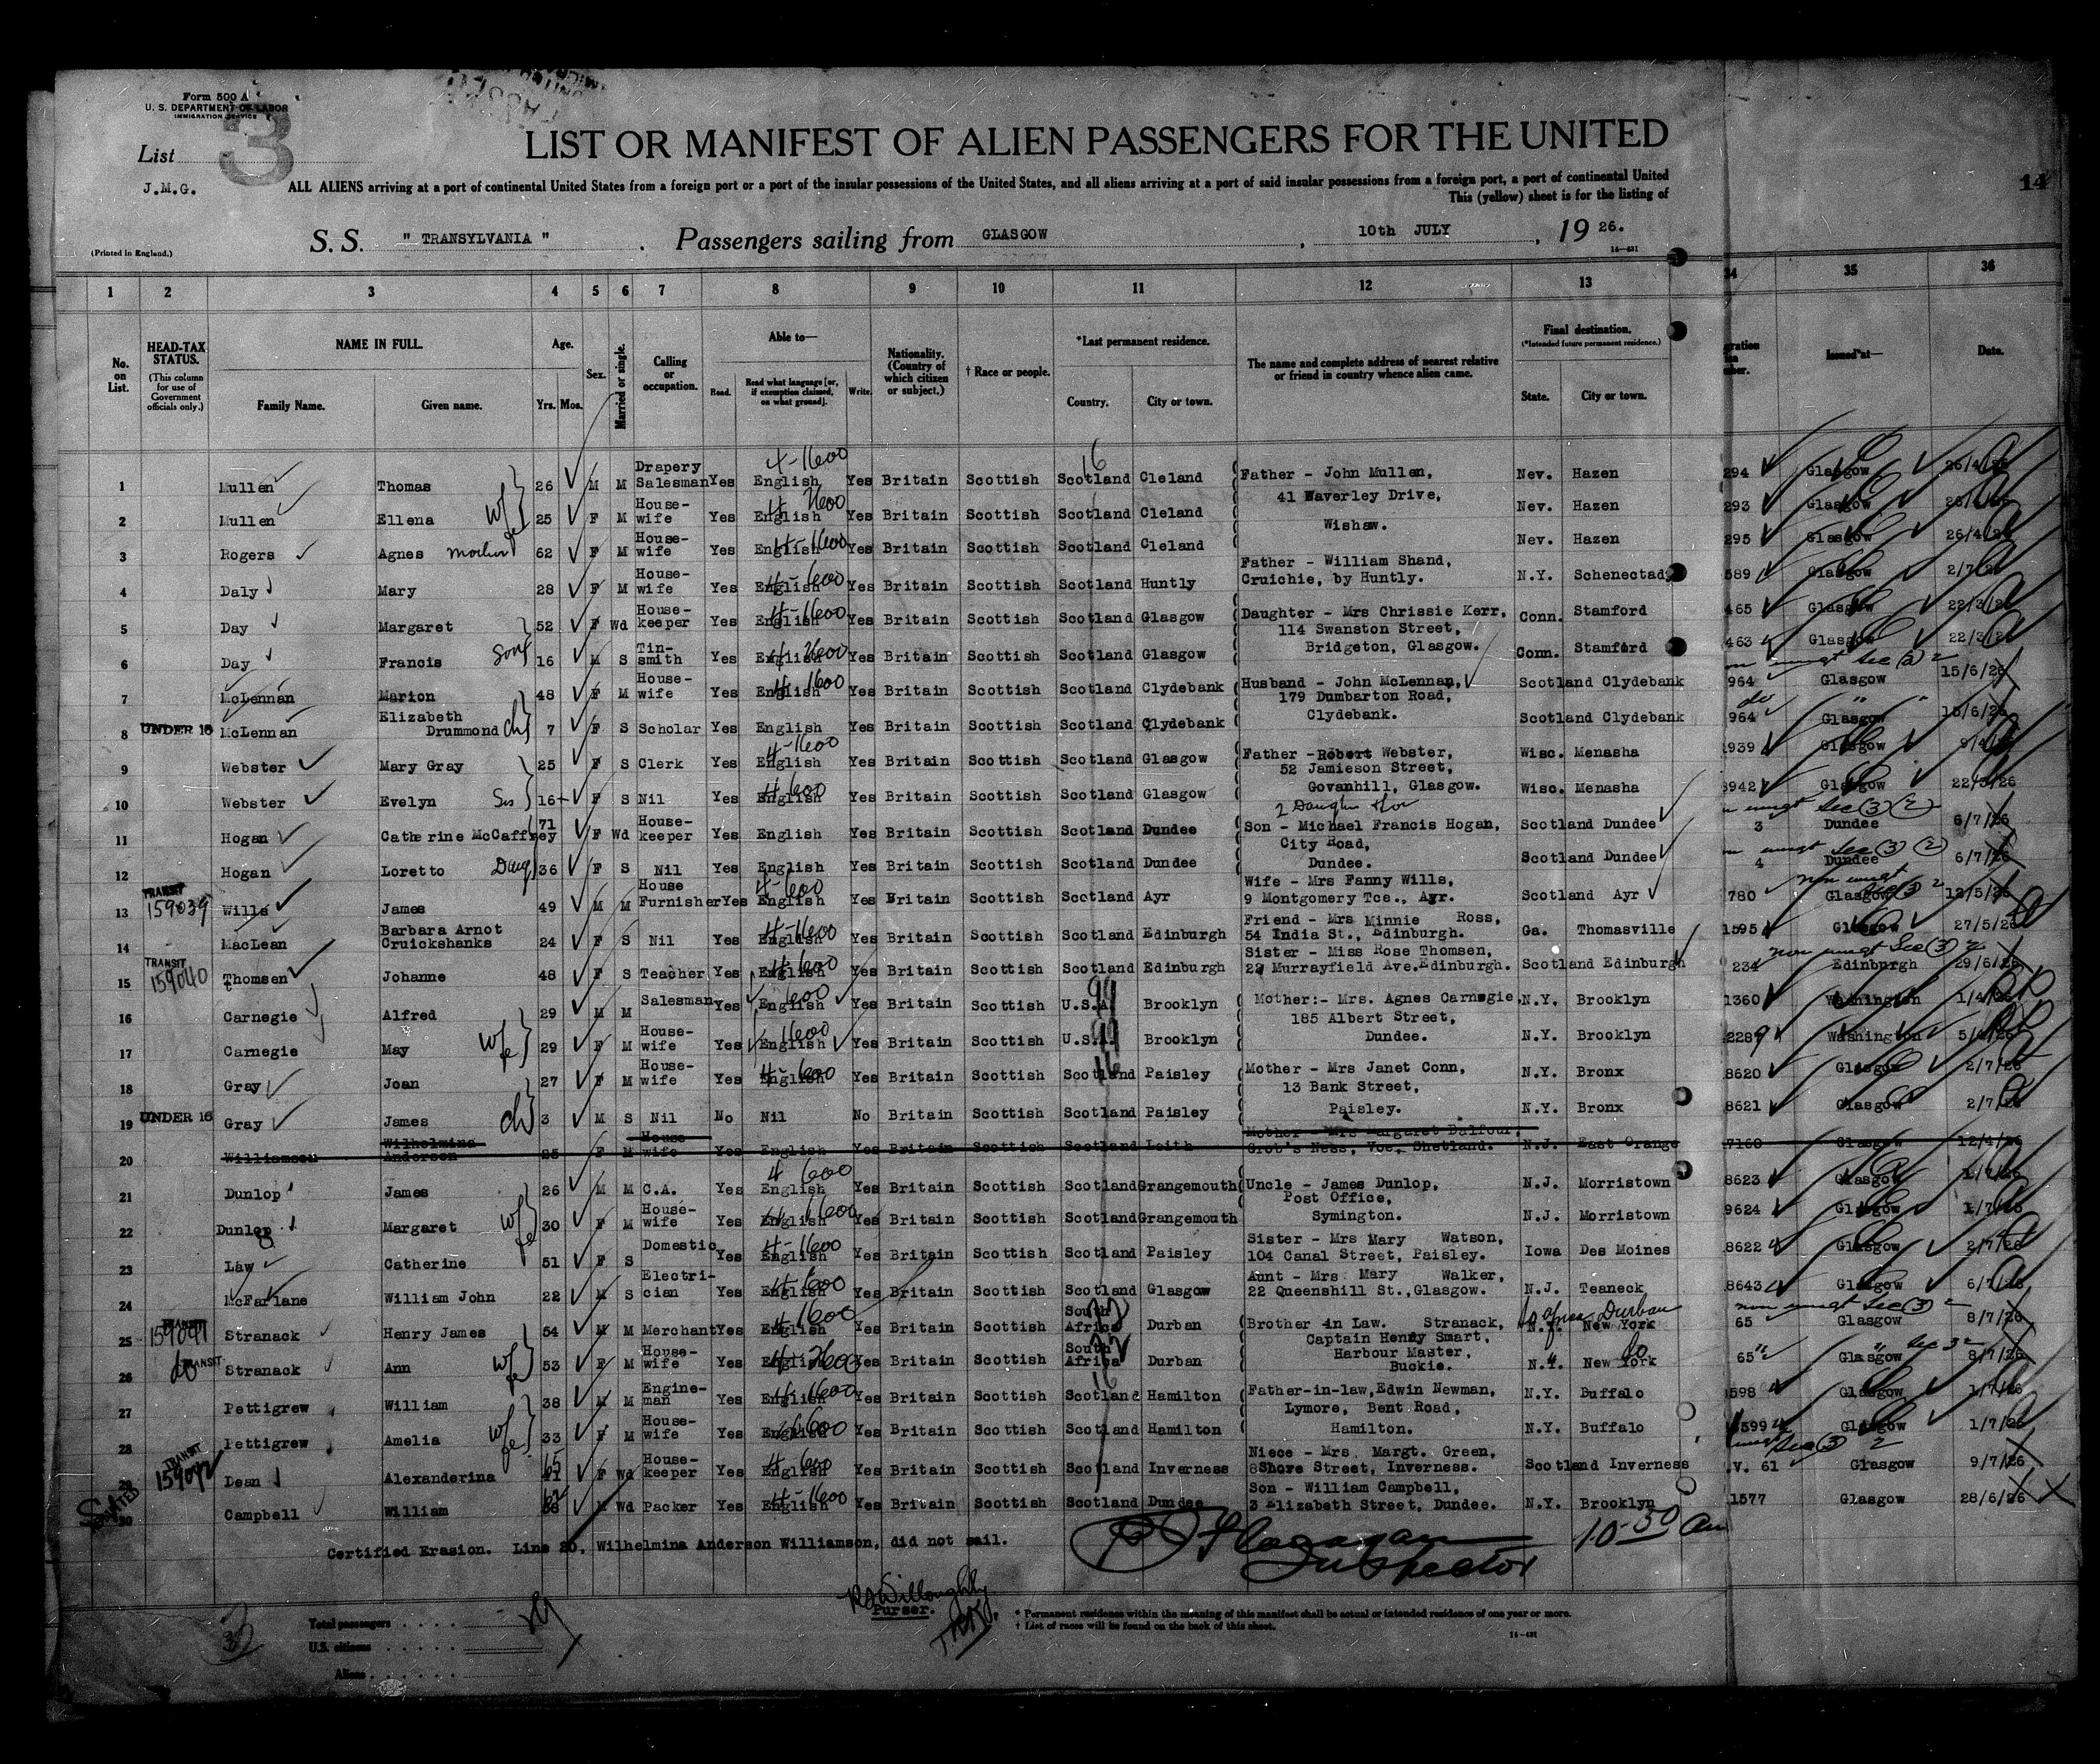 Form 500 A
U. S. DEPARTMENT OF LABOR
IMMIGRATION SERVICE
List 3
J.M.G.
LIST OR MANIFEST OF ALIEN PASSENGERS FOR THE UNITED
ALL ALIENS arriving at a port of continental United States from a foreign port or a port of the insular possessions of the United States, and all aliens arriving at a port of said insular possessions from a foreign port, a port of continental United
This (yellow) sheet is for the listing of
14
(Printed in England.)
S. S. " TRANSYLVANIA " . Passengers sailing from GLASGOW , 10th JULY , 19 26.
14-431
1 2 3 4 5 6 7 8 9 10 11 12 13 34 35 36
No. on List. HEAD-TAX STATUS. (This column for use of Government officials only.) NAME IN FULL. Family Name. Given name. Age. Yrs. Mos. Sex. Married or single. Calling or occupation. Able to— Read. Read what language [or, if exemption claimed, on what ground]. Write. Nationality. (Country of which citizen or subject.) † Race or people. *Last permanent residence. Country. City or town. The name and complete address of nearest relative or friend in country whence alien came. Final destination. (*Intended future permanent residence.) State. City or town. Issued at— Date.
1 Mullen Thomas 26 M M Drapery Salesman Yes English Yes Britain Scottish Scotland Cleland Father - John Mullen, Nev. Hazen 294 Glasgow 26/4/26
2 Mullen Ellena wfe 25 F M House-wife Yes English Yes Britain Scottish Scotland Cleland 41 Waverley Drive, Wishaw. Nev. Hazen 293 Glasgow 26/4/26
3 Rogers Agnes mother 62 F M House-wife Yes English Yes Britain Scottish Scotland Cleland Nev. Hazen 295 Glasgow 26/4/26
4 Daly Mary 28 F M House-wife Yes English Yes Britain Scottish Scotland Huntly Father - William Shand, Cruichie, by Huntly. N.Y. Schenectad 589 Glasgow 2/7/26
5 Day Margaret 52 F Wd House-keeper Yes English Yes Britain Scottish Scotland Glasgow Daughter - Mrs Chrissie Kerr, 114 Swanston Street, Conn. Stamford 465 Glasgow 22/3/26
6 Day Francis son 16 M S Tin-smith Yes English Yes Britain Scottish Scotland Glasgow Bridgeton, Glasgow. Conn. Stamford 463 Glasgow 22/3/26
7 McLennan Marion 48 F M House-wife Yes English Yes Britain Scottish Scotland Clydebank Husband - John McLennan, 179 Dumbarton Road, Scotland Clydebank 964 Glasgow 15/6/26
8 UNDER 16 McLennan Elizabeth Drummond ch 7 F S Scholar Yes English Yes Britain Scottish Scotland Clydebank Clydebank. Scotland Clydebank 964 do Glasgow 15/6/26
9 Webster Mary Gray 25 F S Clerk Yes English Yes Britain Scottish Scotland Glasgow Father - Robert Webster, 52 Jamieson Street, Wisc. Menasha 939 Glasgow 9/4/26
10 Webster Evelyn Sis 16 F S Nil Yes English Yes Britain Scottish Scotland Glasgow Govanhill, Glasgow. Wisc. Menasha 8942 Glasgow 22/3/26
11 Hogan Catherine McCaffrey 71 F Wd House-keeper Yes English Yes Britain Scottish Scotland Dundee Son - Michael Francis Hogan, City Road, Scotland Dundee 3 Dundee 6/7/26
12 Hogan Loretto Daug 36 F S Nil Yes English Yes Britain Scottish Scotland Dundee Dundee. Scotland Dundee 4 Dundee 6/7/26
13 TRANSIT 159039 Wills James 49 M M House Furnisher Yes English Yes Britain Scottish Scotland Ayr Wife - Mrs Fanny Wills, 9 Montgomery Tce., Ayr. Scotland Ayr 780 Glasgow 12/5/26
14 MacLean Barbara Arnot Cruickshanks 24 F S Nil Yes English Yes Britain Scottish Scotland Edinburgh Friend - Mrs Minnie Ross, 54 India St., Edinburgh. Ga. Thomasville 1595 Glasgow 27/5/26
15 TRANSIT 159040 Thomsen Johanne 48 F S Teacher Yes English Yes Britain Scottish Scotland Edinburgh Sister - Miss Rose Thomsen, 22 Murrayfield Ave.Edinburgh. Scotland Edinburgh 234 Edinburgh 29/6/26
16 Carnegie Alfred 29 M M Salesman Yes English Yes Britain Scottish U.S.A. Brooklyn Mother:- Mrs. Agnes Carnegie, 185 Albert Street, N.Y. Brooklyn 1360 Washington 1/4/26
17 Carnegie May wfe 29 F M House-wife Yes English Yes Britain Scottish U.S.A. Brooklyn Dundee. N.Y. Brooklyn 2289 Washington
18 Gray Joan 27 F M House-wife Yes English Yes Britain Scottish Scotland Paisley Mother - Mrs Janet Conn, 13 Bank Street, N.Y. Bronx 8620 Glasgow 2/7/26
19 UNDER 16 Gray James ch 3 M S Nil No Nil No Britain Scottish Scotland Paisley Paisley. N.Y. Bronx 8621 Glasgow 2/7/26
20 Williamson Wilhelmina Anderson 25 F M House wife Yes English Yes Britain Scottish Scotland Leith Mother - Mrs Margaret Balfour, Grot's Ness, Voe, Shetland. N.J. East Orange 7160 Glasgow 12/4/26
21 Dunlop James 26 M M C.A. Yes English Yes Britain Scottish Scotland Grangemouth Uncle - James Dunlop, Post Office, N.J. Morristown 8623 Glasgow 1/7/26
22 Dunlop Margaret wfe 30 F M House-wife Yes English Yes Britain Scottish Scotland Grangemouth Symington. N.J. Morristown 9624 Glasgow 1/7/26
23 Law Catherine 51 F S Domestic Yes English Yes Britain Scottish Scotland Paisley Sister - Mrs Mary Watson, 104 Canal Street, Paisley. Iowa Des Moines 8622 Glasgow 2/7/26
24 McFarlane William John 22 M S Electri-cian Yes English Yes Britain Scottish Scotland Glasgow Aunt - Mrs Mary Walker, 22 Queenshill St., Glasgow. N.J. Teaneck 8643 Glasgow 6/7/26
25 TRANSIT 159041 Stranack Henry James 54 M M Merchant Yes English Yes Britain Scottish South Africa Durban Brother in Law. Stranack, Captain Henry Smart, N.Y. New York Durban 65 Glasgow 8/7/26
26 do TRANSIT Stranack Ann wfe 53 F M House-wife Yes English Yes Britain Scottish South Africa Durban Harbour Master, Buckie. N.Y. New York do 65 Glasgow 8/7/26
27 Pettigrew William 38 M M Engine-man Yes English Yes Britain Scottish Scotland Hamilton Father-in-law, Edwin Newman, Lymore, Bent Road, N.Y. Buffalo 598 Glasgow 1/7/26
28 Pettigrew Amelia wfe 33 F M House-wife Yes English Yes Britain Scottish Scotland Hamilton Hamilton. N.Y. Buffalo 599 Glasgow 1/7/26
29 TRANSIT 159042 Dean Alexanderina 65 F Wd House-keeper Yes English Yes Britain Scottish Scotland Inverness Niece - Mrs Margt. Green, 8 Shore Street, Inverness. Scotland Inverness .V. 61 Glasgow 9/7/26
30 Campbell William M Wd Packer Yes English Yes Britain Scottish Scotland Dundee Son - William Campbell, 3 Elizabeth Street, Dundee. N.Y. Brooklyn 1577 Glasgow 28/6/26
Certified Erasion. Line 20. Wilhelmina Anderson Williamson, did not sail.
Inspector 10-30 am
Willoughby
Purser.
Total passengers
U.S. citizens
Aliens
* Permanent residence within the meaning of this manifest shall be actual or intended residence of one year or more.
† List of races will be found on the back of this sheet.
14-431